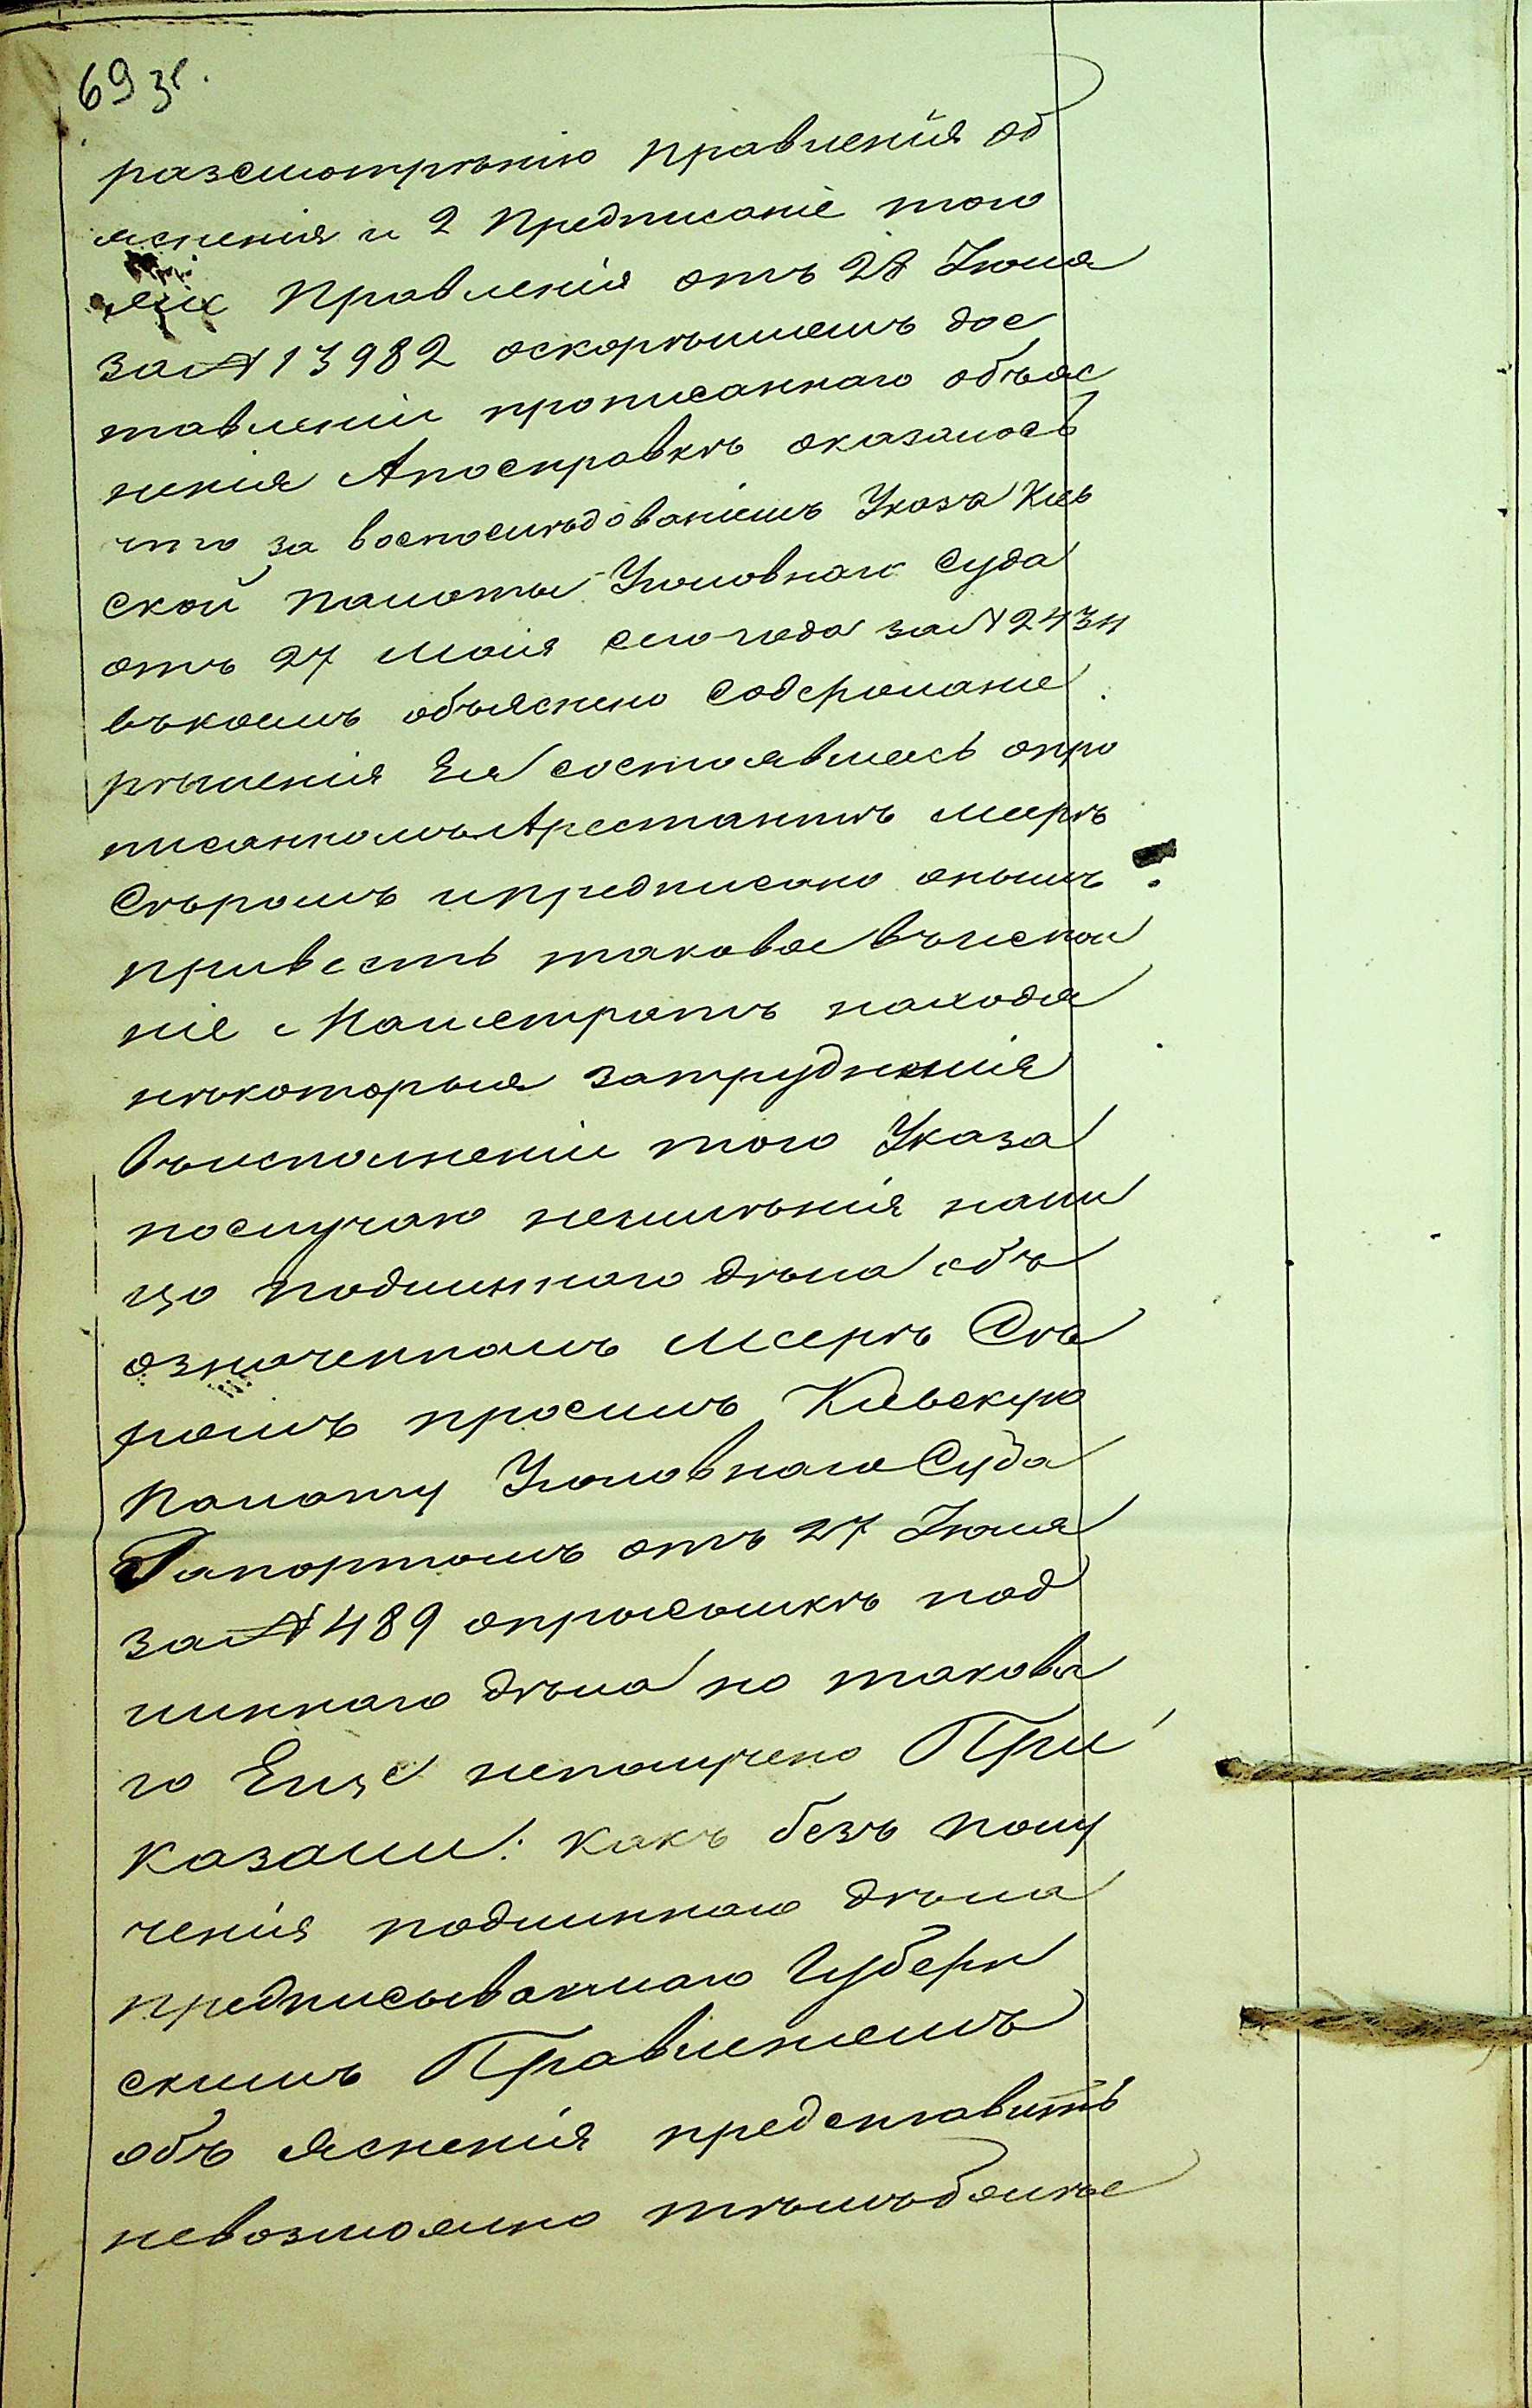 69 зв.
разсмотрѣнію Правленія об
ясненія и 2 Предписаніе того
же Правленія отъ 28 Іюля
за № 13982 оскорѣшемъ дос
тавленіи прописаннаго объяс
ненія Апосправкѣ оказалось
что за воспослѣдованіемъ Указа Кіев
ской Палаты Уголовнаго Суда
отъ 27 Маія сего года за №
въкоемъ объяснено содержание
рѣшенія Ея состоявшееся опро
писанномъ Арестантѣ Меерѣ
Сѣромъ ипредписано онымъ
привесть таковое въиспол
ніе Магистратъ находя
нѣкоторыя затрудненія
въисполненіи того Указа
послучаю неимѣнія нали
цо подлиннаго дѣла объ
означенномъ Меерѣ Сѣ
ромъ просилъ Кіевскую
Палату Уголовнаго Суда
Рапортомъ отъ 27 Іюля
за № 489 оприсылкѣ под
линнаго дѣла но таковы
го Еще неполучено При
казали: какъ безъ полу
ченія подлиннаго дѣла
предписываемаго Губерн
скимъ Правленіемъ
объ ясненія представить
невозможно тѣмъболѣе